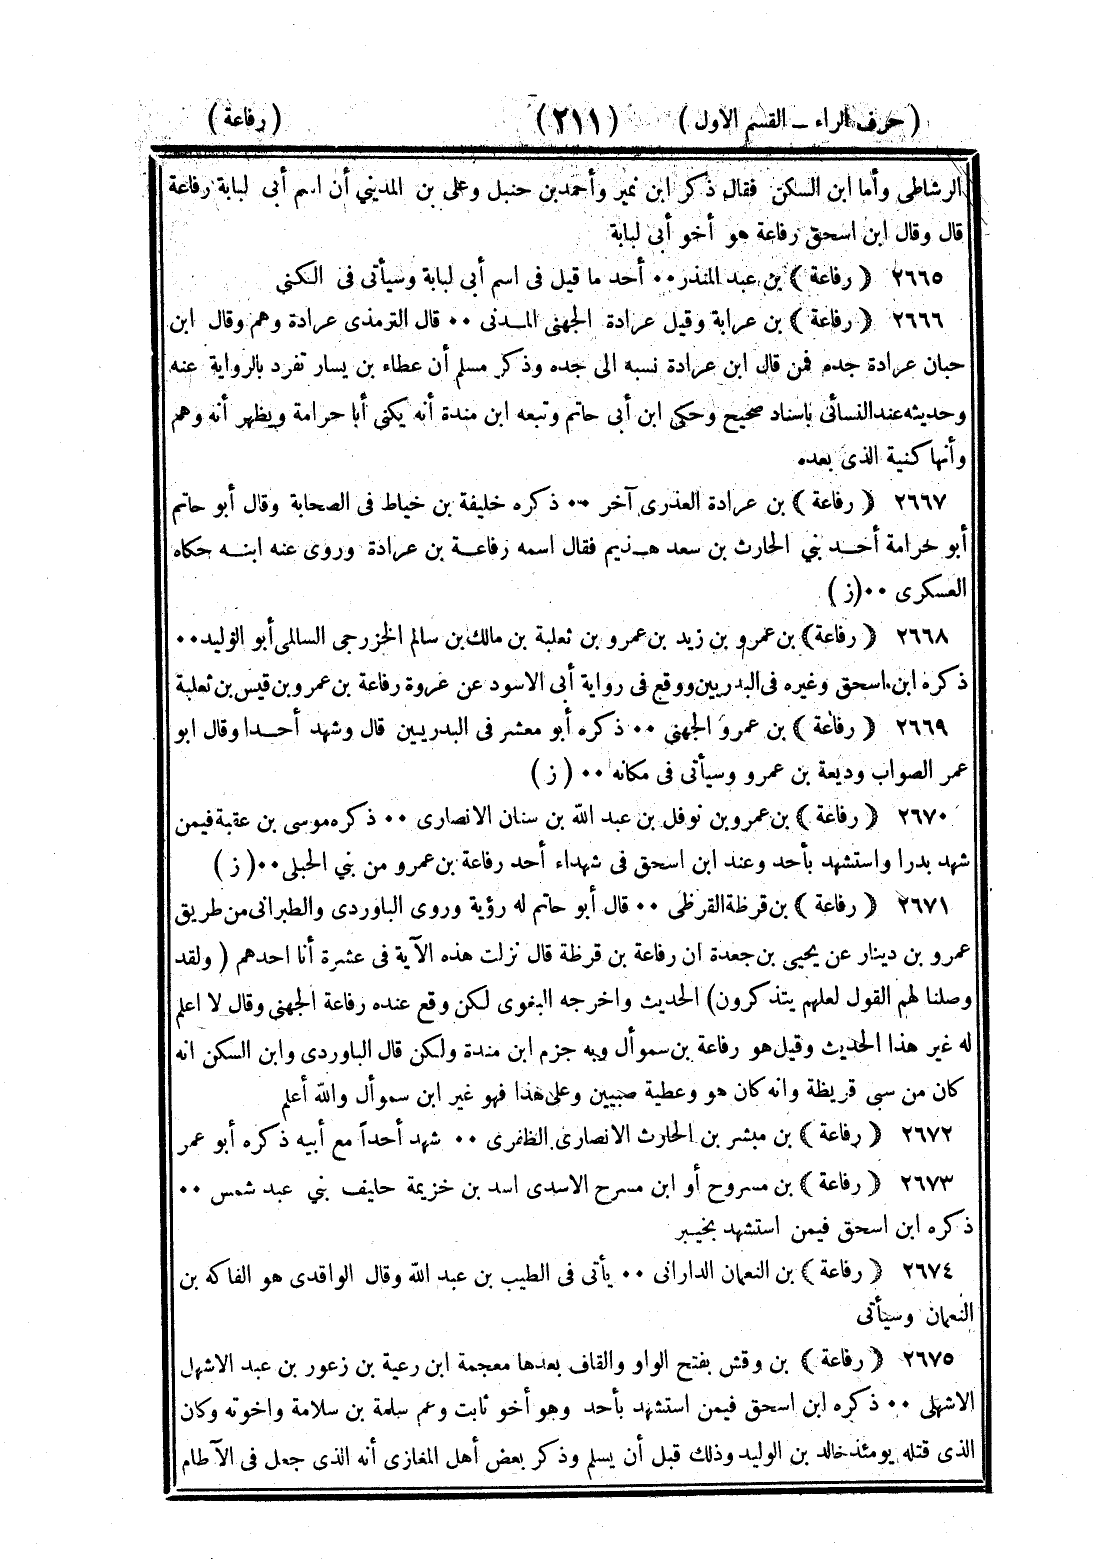 ( حرف الراء ــ القسم الاول ) (٢١١) ( رفاعة )
الرشاطى وأما ابن السكن فقال ذكر ابن نمير وأحمد بن حنبل وعلى بن المديني أن اسم أبى لبابة رفاعة
قال وقال ابن اسحق رفاعة هو أخو أبى لبابة
٢٦٦٥ ( رفاعة ) بن عبد المنذر ٠٠ أحد ما قيل فى اسم أبي لبابة وسيأتى فى الكنى
٢٦٦٦ ( رفاعة ) بن عرابة وقيل عرادة الجهنى المدنى ٠٠ قال الترمذى عرادة وهم وقال ابن
حبان عرادة جده فمن قال ابن عرادة نسبه الى جده وذكر مسلم أن عطاء بن يسار تفرد بالرواية عنه
وحديثه عند النسائى باسناد صحيح وحكى ابن أبى حاتم وتبعه ابن مندة أنه يكنى أبا حرامة ويظهر أنه وهم
وأنها كنية الذى بعده
٢٦٦٧ ( رفاعة ) بن عرادة العذرى آخر ٠٠ ذكره خليفة بن خياط فى الصحابة وقال أبو حاتم
أبو خرامة أحد بني الحارث بن سعد هذيم فقال اسمه رفاعة بن عرادة وروى عنه ابنه حكاه
العسكرى ٠٠ (ز )
٢٦٦٨ ( رفاعة ) بن عمرو بن زيد بن عمرو بن ثعلبة بن مالك بن سالم الخزرجي السالمى أبو الوليد ٠٠
ذكره ابن اسحق وغيره فى البدريين ووقع فى رواية أبى الاسود عن عروة رفاعة بن عمرو بن قيس بن ثعلبة
٢٦٦٩ ( رفاعة ) بن عمرو الجهني ٠٠ ذكره أبو معشر فى البدريين قال وشهد أحدا وقال ابو
عمر الصواب وديعة بن عمرو وسيأتى فى مكانه ٠٠ ( ز )
٢٦٧٠ ( رفاعة ) بن عمرو بن نوفل بن عبد الله بن سنان الانصارى ٠٠ ذكره موسى بن عقبة فيمن
شهد بدرا واستشهد بأحد وعند ابن اسحق فى شهداء أحد رفاعة بن عمرو من بني الحبلى ٠٠ ( ز )
٢٦٧١ ( رفاعة ) بن قرظة القرظى ٠٠ قال أبو حاتم له رؤية وروى الباوردى والطبرانى من طريق
عمرو بن دينار عن يحيى بن جعدة ان رفاعة بن قرظة قال نزلت هذه الآية فى عشرة أنا احدهم ( ولقد
وصلنا لهم القول لعلهم يتذكرون) الحديث واخرجه البغوى لكن وقع عنده رفاعة الجهني وقال لا اعلم
له غير هذا الحديث وقيل هو رفاعة بن سموأل وبه جزم ابن مندة ولكن قال الباوردى وابن السكن انه
كان من سبى قريظة وانه كان هو وعطية صبيين وعلى هذا فهو غير ابن سموأل والله أعلم
٢٦٧٢ ( رفاعة ) بن مبشر بن الحارث الانصارى الظفرى ٠٠ شهد أحداً مع أبيه ذكره أبو عمر
٢٦٧٣ ( رفاعة ) بن مسروح أو ابن مسرح الاسدى اسد بن خزيمة حليف بني عبد شمس ٠٠
ذكره ابن اسحق فيمن استشهد بخيبر
٢٦٧٤ ( رفاعة ) بن النعمان الدارانى ٠٠ يأتى فى الطيب بن عبد الله وقال الواقدى هو الفاكه بن
النعمان وسيأتى
٢٦٧٥ ( رفاعة ) بن وقش بفتح الواو والقاف بعدها معجمة ابن رعية بن زعور بن عبد الاشهل
الاشهلى ٠٠ ذكره ابن اسحق فيمن استشهد بأحد وهو أخو ثابت وعم سلمة بن سلامة واخوته وكان
الذى قتله يومئذ خالد بن الوليد وذلك قبل أن يسلم وذكر بعض أهل المغازى أنه الذى جعل فى الآطام